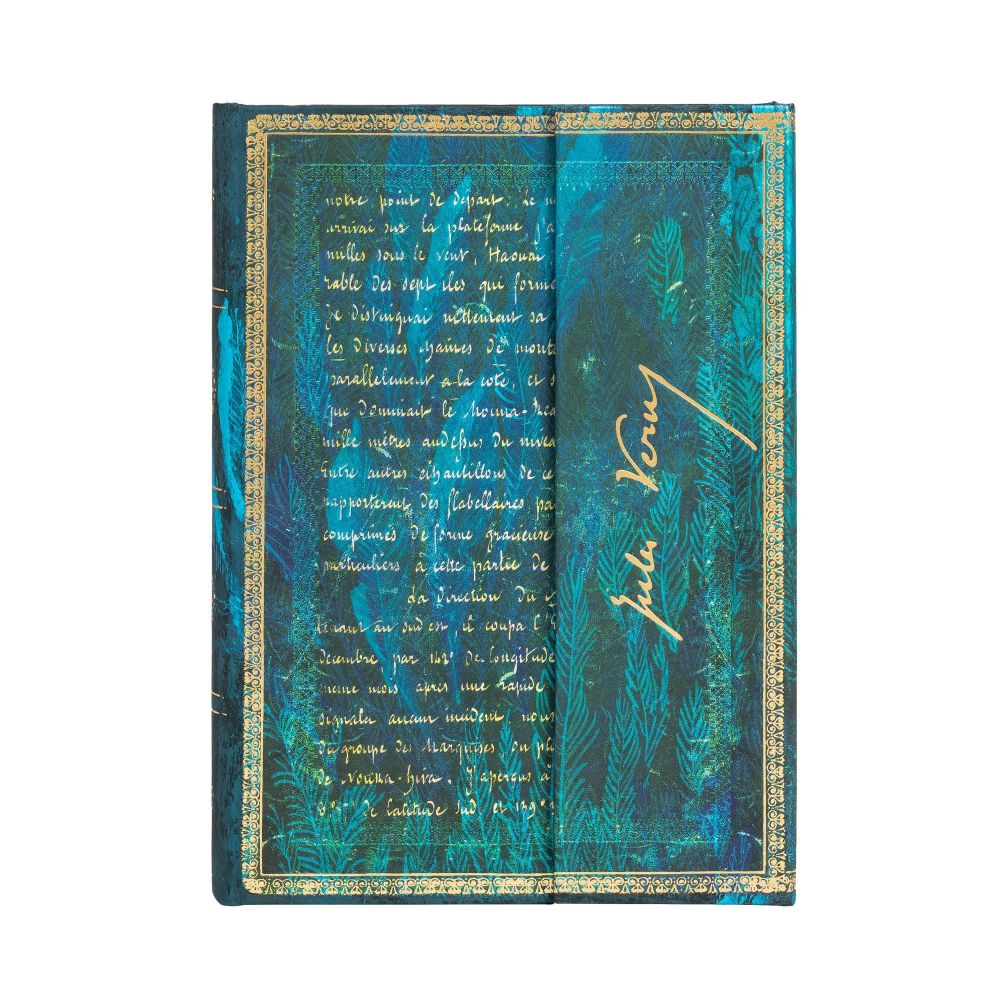 notre point de départ. Le
arrivai sur la plateforme j'a
milles sous le vent, Haouai
rable des sept iles qui forme
Je distinguai nettement sa
les diverses chaines de monts
parallelement a la cote, et s
que dominait le Mouna-Rea
mille mètres audessus du nivea
Entre autres échantillons de ce
rapporterent des flabellaires pa
comprimés de forme gracieuse
particuliers à cette partie de
La direction du
tenant au sud est, il coupa l'E
decembre, par 142° de longitude
meme mois apres une rapide
signala aucun incident, nous
du groupe des Marquises. Du pl
de Nouka-hiva. J'aperçus à
de latitude sud et 139°
Jules Verne